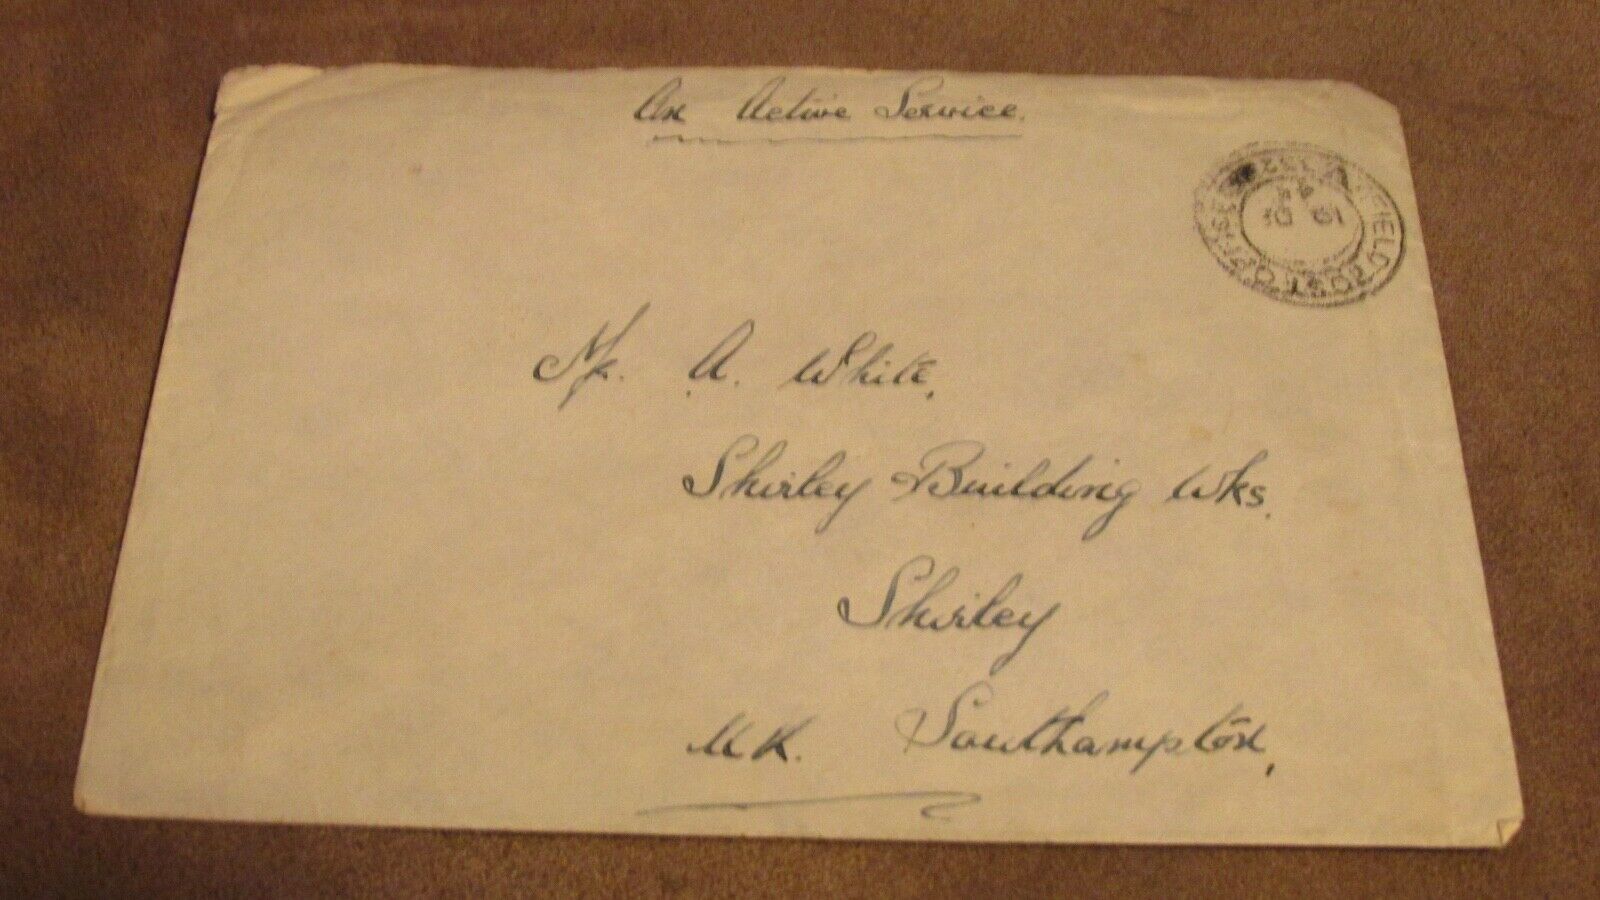 On Active Service.
FIELD POST OFFICE
Mr. A. White,
Shirley Building Wks.
Shirley
U.K. Southampton,